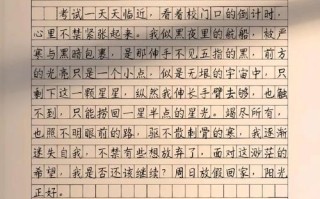 考试一天天临近，看着校门口的倒计时，
心里不禁紧张起来。我似黑夜里的航船，被严
寒与黑暗包裹，是那伸手不见五指的黑，前方
的光亮只是一个小点，似是无垠的宇宙中，只
剩下这一颗星星，纵然我伸长手臂去够，也触
不到，只能捞回一星半点的星光。竭尽所有，
也照不明眼前的路，驱不散刺骨的寒，我逐渐
迷失自我，不禁有些想放弃了，面对这渺茫的
希望，我是否还该继续？周日放假回家，阳光
正好。